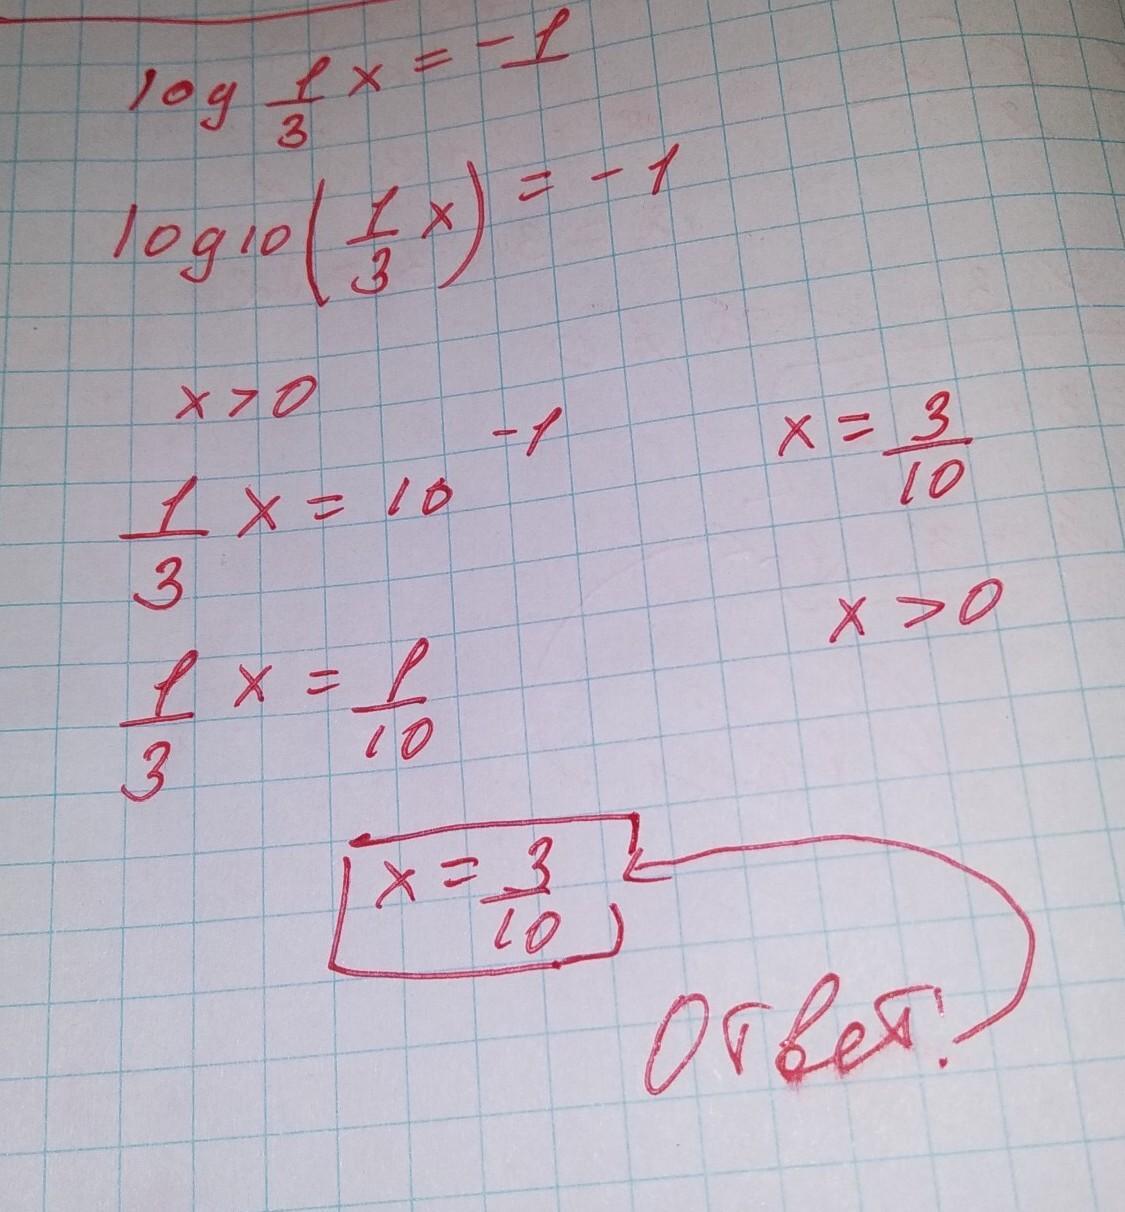 log 1/3 x = -1
log10(1/3 x) = -1
x > 0
1/3 x = 10^-1
1/3 x = 1/10
x = 3/10
x > 0
x = 3/10
Ответ: